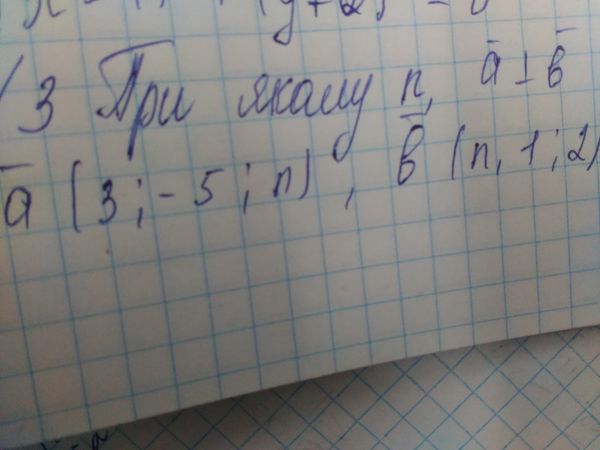 3 При якому n, a̅ ⊥ b̅
a̅ (3; -5; n), b̅ (n, 1; 2)